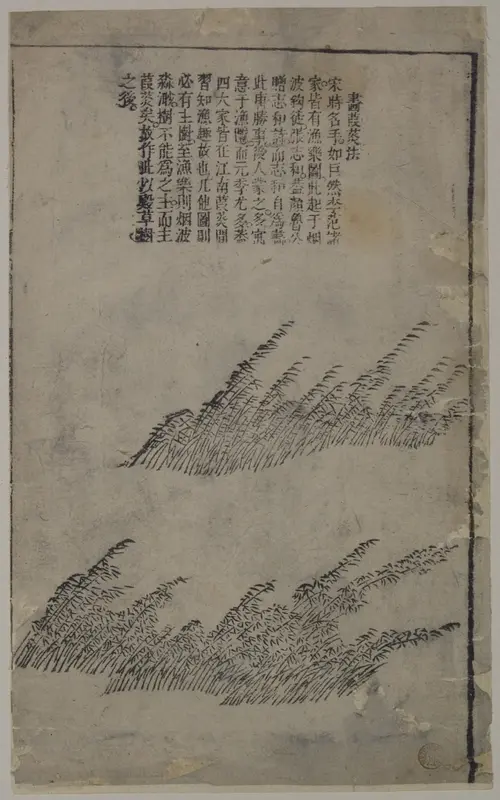 畫葭菼法
宋時名手如巨然李范諸
家皆有漁樂圖此起于烟
波釣徒張志和蓋顏魯公
贈志和詩而志和自爲畫
此唐勝事後人摹之多寓
意于漁隱而元季尤多蓋
四大家皆在江南葭菼間
習知漁趣故也凡他圖則
必有主樹至漁樂則烟波
淼瀰樹不能爲之主而主
葭菼矣故作此以殿草樹
之後